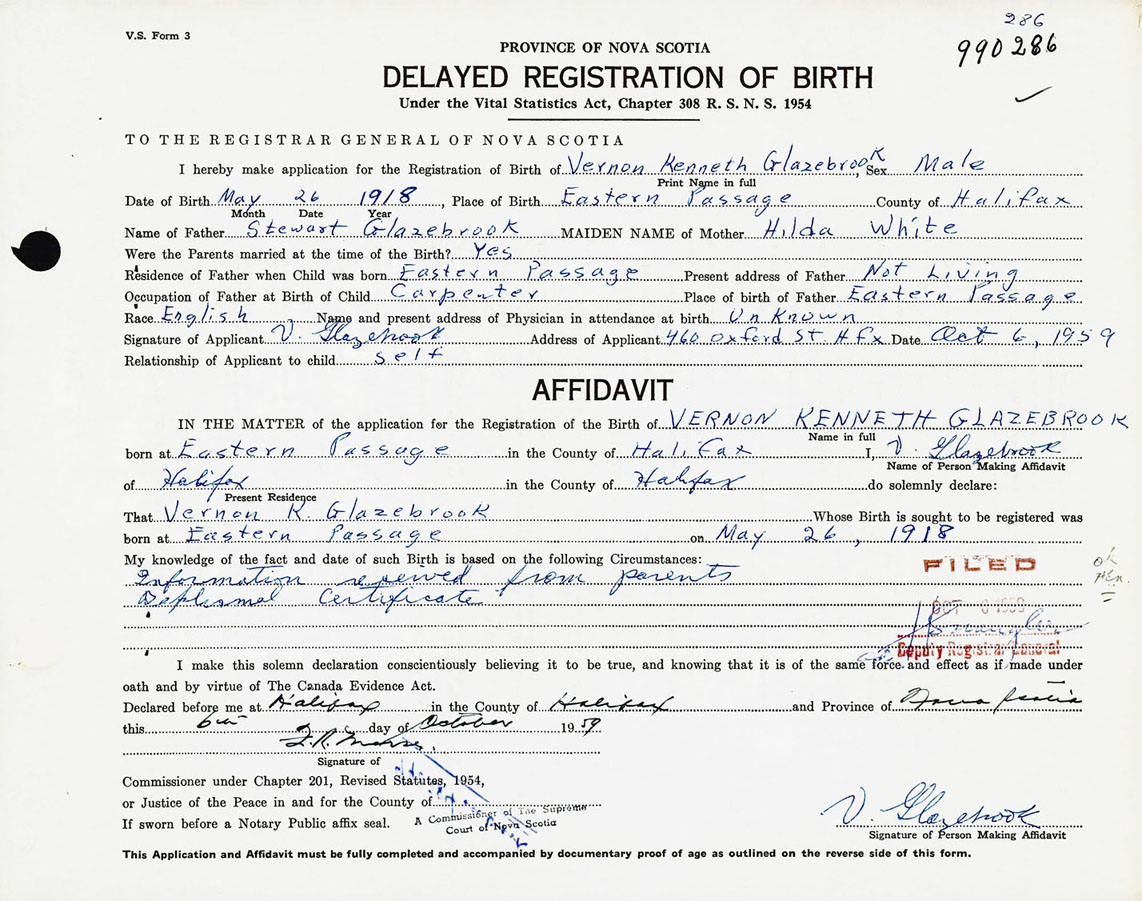 286
V.S. Form 3
990286
PROVINCE OF NOVA SCOTIA
DELAYED REGISTRATION OF BIRTH
Under the Vital Statistics Act, Chapter 308 R. S. N. S. 1954
TO THE REGISTRAR GENERAL OF NOVA SCOTIA
I hereby make application for the Registration of Birth of Vernon Kenneth Glazebrook, Sex Male
Print Name in full
Date of Birth May 26 1918, Place of Birth Eastern Passage County of Halifax
Month Date Year
Name of Father Stewart Glazebrook MAIDEN NAME of Mother Hilda White
Were the Parents married at the time of the Birth? Yes
Residence of Father when Child was born Eastern Passage Present address of Father Not Living
Occupation of Father at Birth of Child Carpenter Place of birth of Father Eastern Passage
Race English Name and present address of Physician in attendance at birth UnKnown
Signature of Applicant V. Glazebrook Address of Applicant 460 Oxford St. Hfx Date Oct 6, 1959
Relationship of Applicant to child self
AFFIDAVIT
IN THE MATTER of the application for the Registration of the Birth of VERNON KENNETH GLAZEBROOK
Name in full
born at Eastern Passage in the County of Halifax I, V. Glazebrook
Name of Person Making Affidavit
of Halifax in the County of Halifax do solemnly declare:
Present Residence
That Vernon K. Glazebrook Whose Birth is sought to be registered was
born at Eastern Passage on May 26, 1918
My knowledge of the fact and date of such Birth is based on the following Circumstances:
FILED
Information from parents
Certificate
OCT 6 1959
Deputy Registrar General
I make this solemn declaration conscientiously believing it to be true, and knowing that it is of the same force and effect as if made under
oath and by virtue of The Canada Evidence Act.
Declared before me at Halifax in the County of Halifax and Province of Nova Scotia
this 6th day of October 1959
Signature of
Commissioner under Chapter 201, Revised Statutes, 1954,
or Justice of the Peace in and for the County of
A Commissioner of The Supreme
Court of Nova Scotia
If sworn before a Notary Public affix seal.
V. Glazebrook
Signature of Person Making Affidavit
This Application and Affidavit must be fully completed and accompanied by documentary proof of age as outlined on the reverse side of this form.